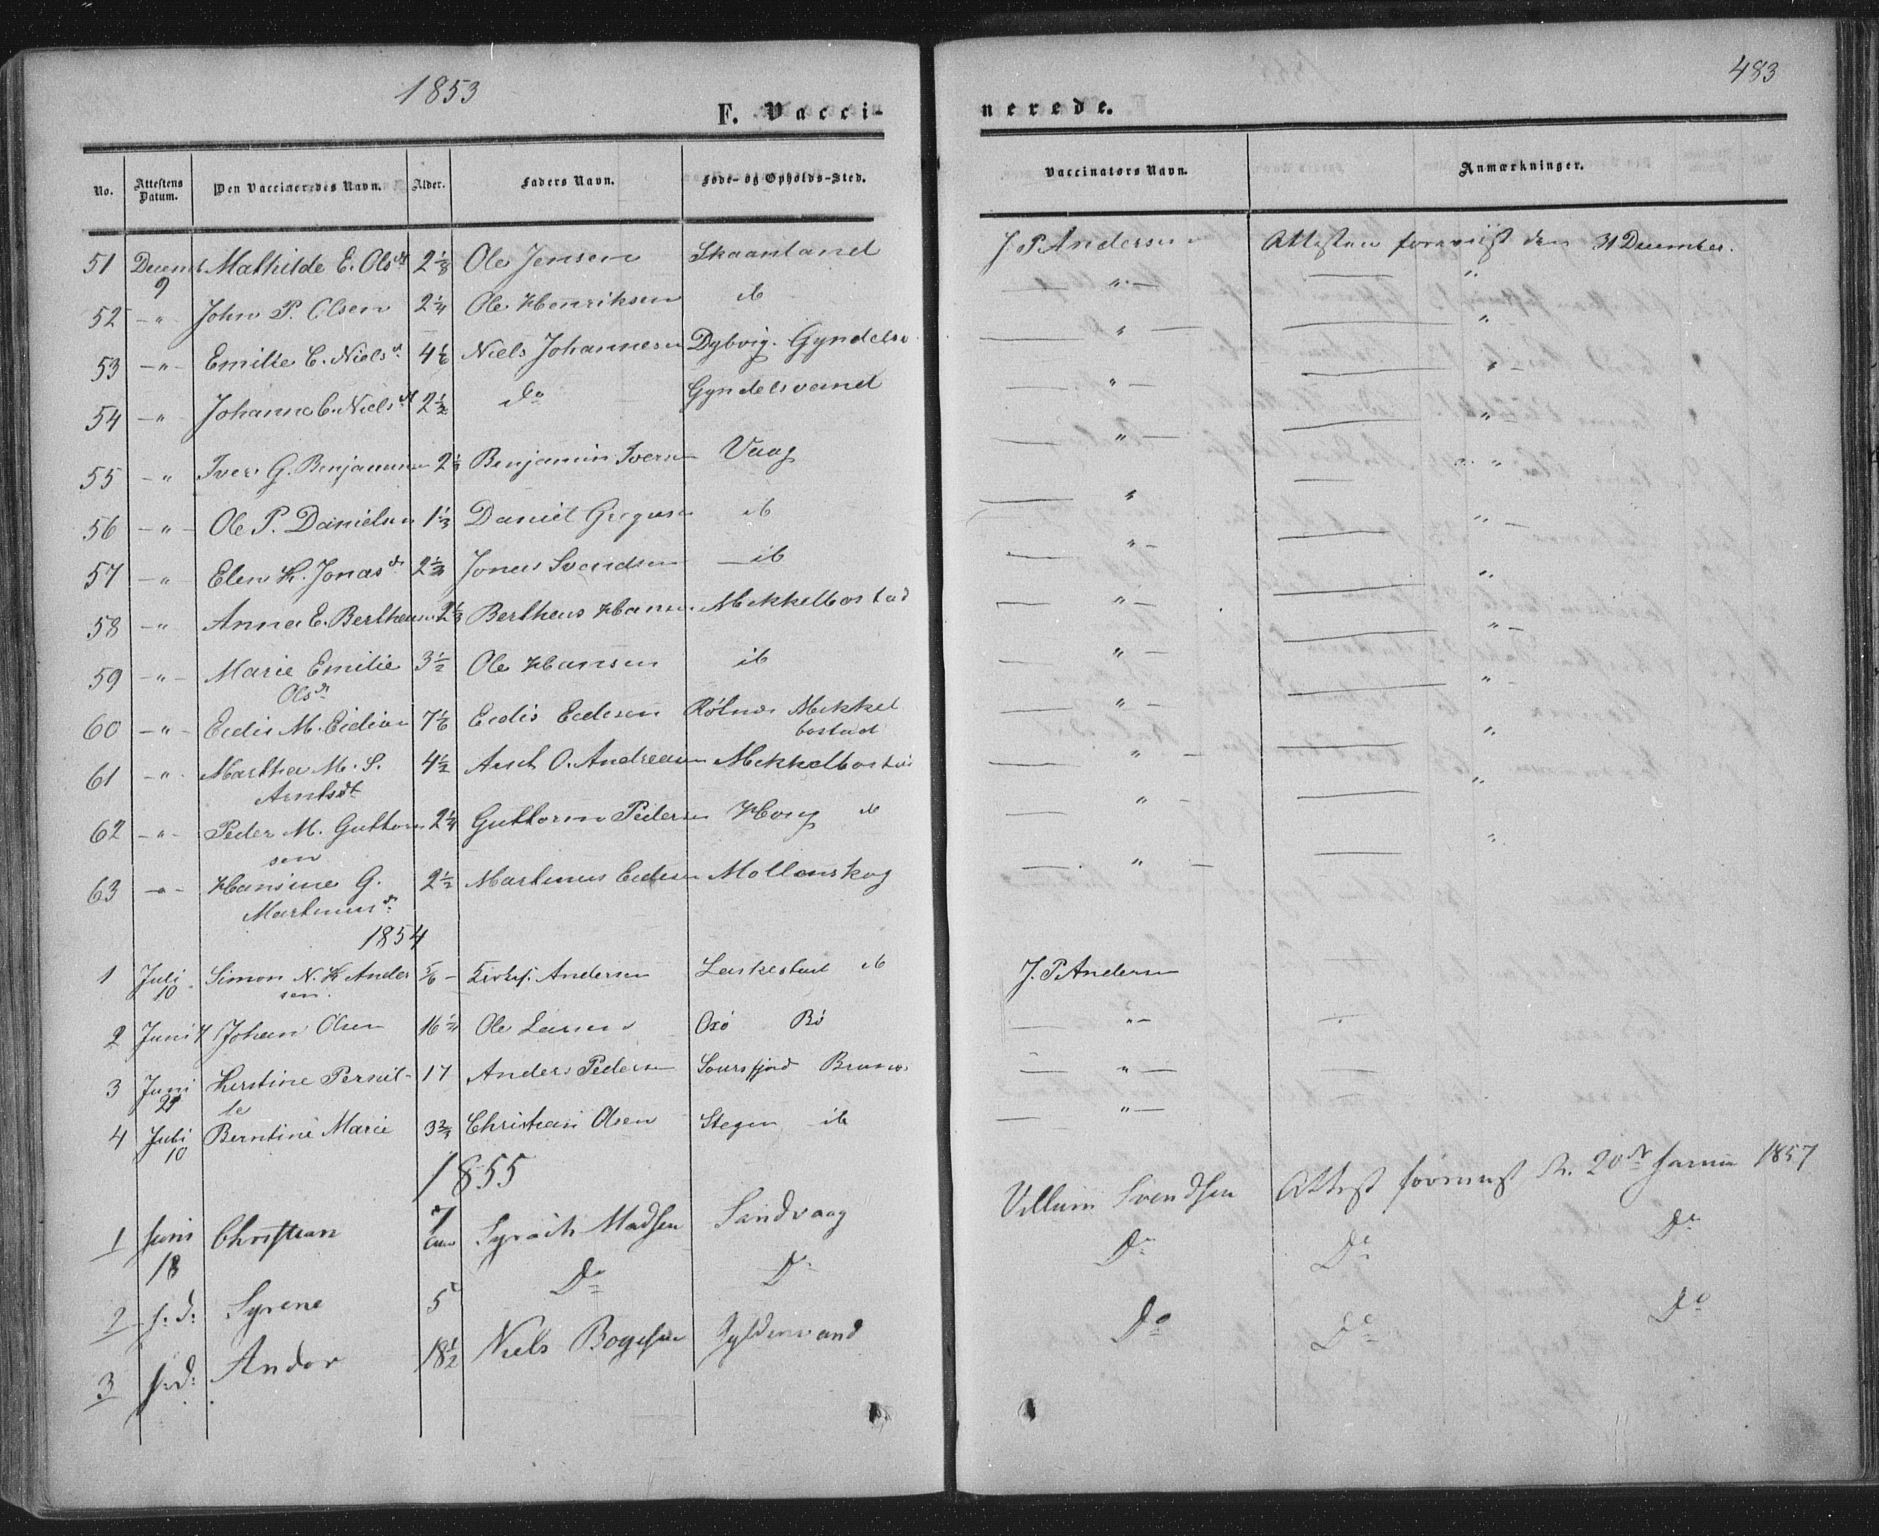 1853
483
F. Vacci-
nerede.
No. Attestens Datum. Den Vaccineredes Navn. Alder. Faders Navn. Føde- og Opholds-Sted. Vaccinators Navn. Anmærkninger.
51 Decemb 9 Mathilde E. Olsdt 2 1/8 Ole Jensen Skaanland J. P. Andersen Attesten foreviist den 31 December.
52 -"- John P. Olsen 2 1/4 Ole Henriksen ib — " — — "
53 -"- Emilie C. Nielsd. 4 1/6 Niels Johannesen Dybvig. Gyndelsv — " — — "
54 -"- Johanne C. Nielsdt 2 1/2 do Gyndelsvand — " — — " -
55 -"- Iver G. Benjamins 2 1/3 Benjamin Iversen Vaag — " — — "
56 -"- Ole P. Danielsen 1 1/3 Daniel Gregersen ib — " — "
57 -"- Elen K. Jonasd. 2 1/2 Jonas Svendsen ib — " — — " —
58 -"- Anna E. Bertheus 2 1/3 Bertheus Hansen Mekkelbostad — " — — "
59 -"- Marie Emilie 3 1/2 Ole Hansen ib — " — — " —
Olsd.
60 -"- Eedis M. Eedisen 7 1/6 Eedis Eedesen Rølnes Mekkel — " — — "
bostad
61 -"- Martha M. S. 4 1/2 Arnt O. Andreasen Mekkelbostad — " — — "
Arntsdt
62 -"- Peder M. Guttorm 2 1/4 Guttorm Pedersen Houg ib — " — — "
sen
63 -"- Hansine G. 2 1/2 Martinus Eedesen Mollenskog — " — — "
Martinusd.
1854
1 Juli 10 Simon N. K. Ander 5/6 — Andersen Laskestad ib J. P. Andersen —
sen.
2 Juni 4 Johan Olsen 16 1/2 Ole Larsen Oxø Bø — " —
3 Juni 21 Kerstine Pernil- 17 Anders Pedersen Soursfjord — " —
le
4 Juli 10 Berntine Marie 3 2/3 Christian Olsen Stegen ib — " —
1855
1 Juni 18 Christian 7 Syrach Madsen Sandvaag Villum Svendsen Attest foreviist d. 20de Januar 1857
2 s. d. Syrene 5 Do Do Do Do Do
3 s. d. Andor 18 1/2 Niels Bogesen Gyldenvand Do Do Do